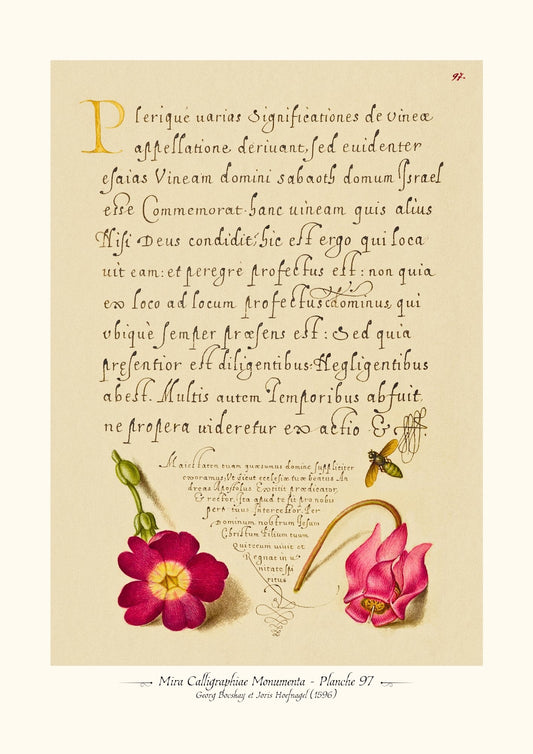 97.
Plerique uarias Significationes de vineæ
appellatione deriuant, sed euidenter
esaias Vineam domini sabaoth domum Israel
esse Commemorat. hanc uineam quis alius
Nisi Deus condidit; hic est ergo qui loca
uit eam: et peregrè profectus est: non quia
ex loco ad locum profectus dominus, qui
vbiquè semper præsens est: Sed quia
presentior est diligentibus: Negligentibus
abest. Multis autem Temporibus abfuit,
ne propera uideretur exactio &
Maiestatem tuam quæsumus domine suppliciter
exoramus, Vt sicut ecclesiæ tuæ beatus An
dreas Apostolus Extitit prædicator,
& rector, Ita apud te sit pro nobis
perpetuus Intercessor. Per
Dominum nostrum Jesum
Christum Filium tuum
Qui tecum uiuit et
Regnat in u
nitate spi
ritus
Mira Calligraphiae Monumenta - Planche 97
Georg Bocskay et Joris Hoefnagel (1596)